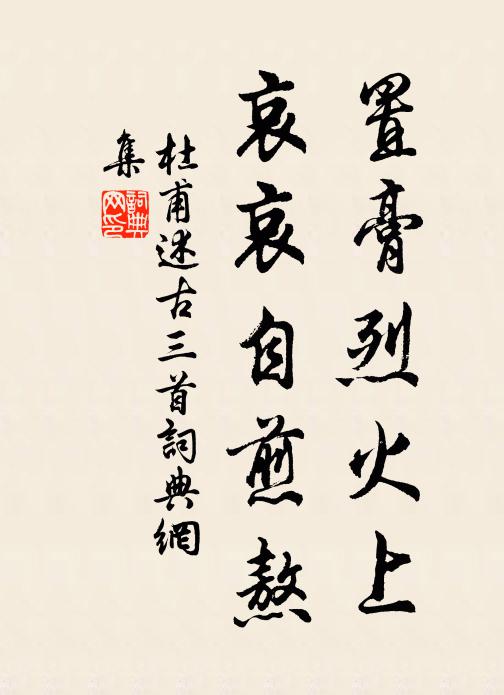 置膏烈火上
哀哀自煎熬
杜甫述古三首詞典網
集
詞典
网印